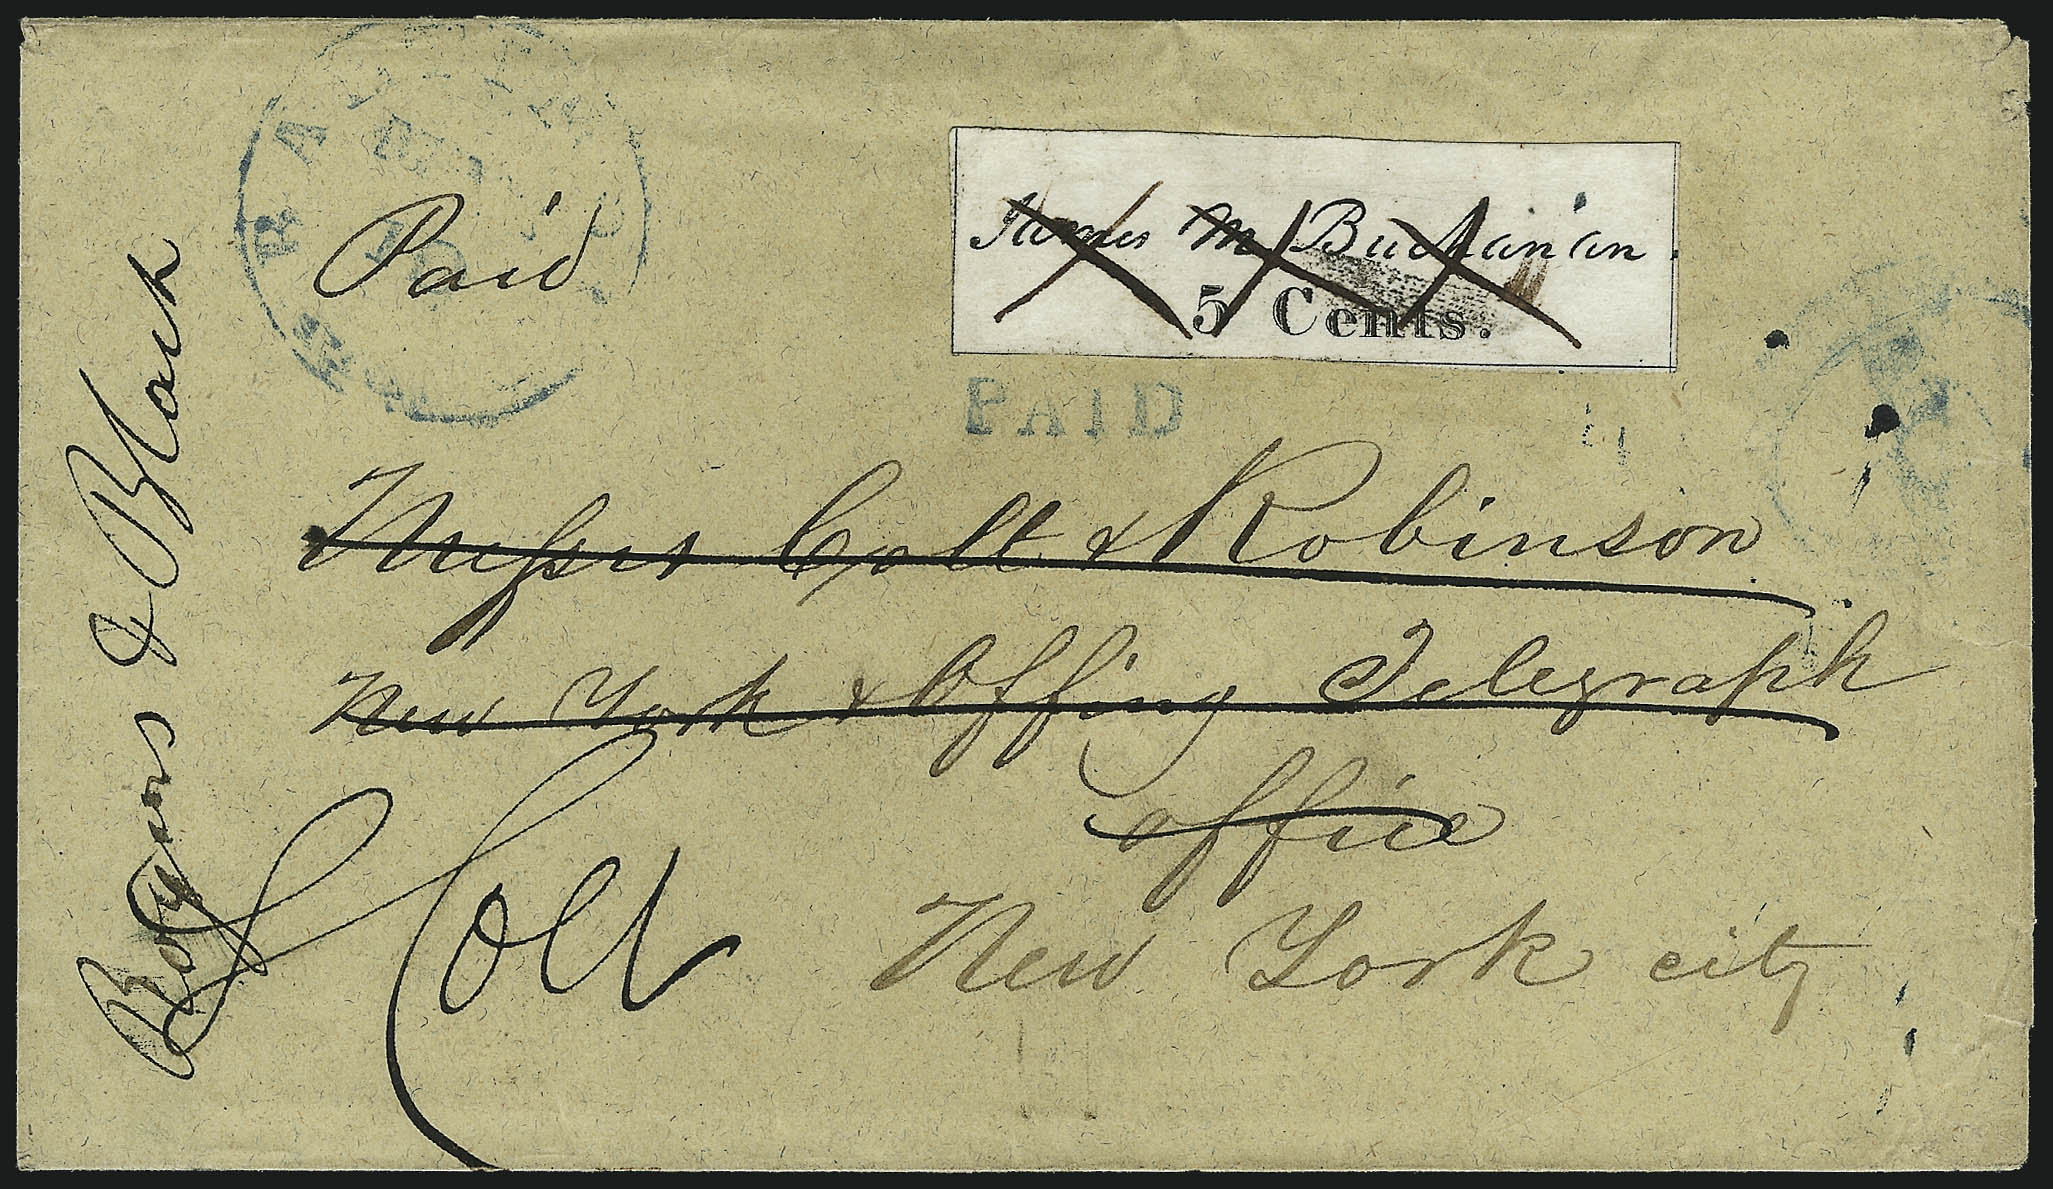 Paid
James M. Buchanan.
5 Cents.
PAID
Messrs Colt & Robinson
New York & Offing Telegraph
office
New York city
Colt
& Black